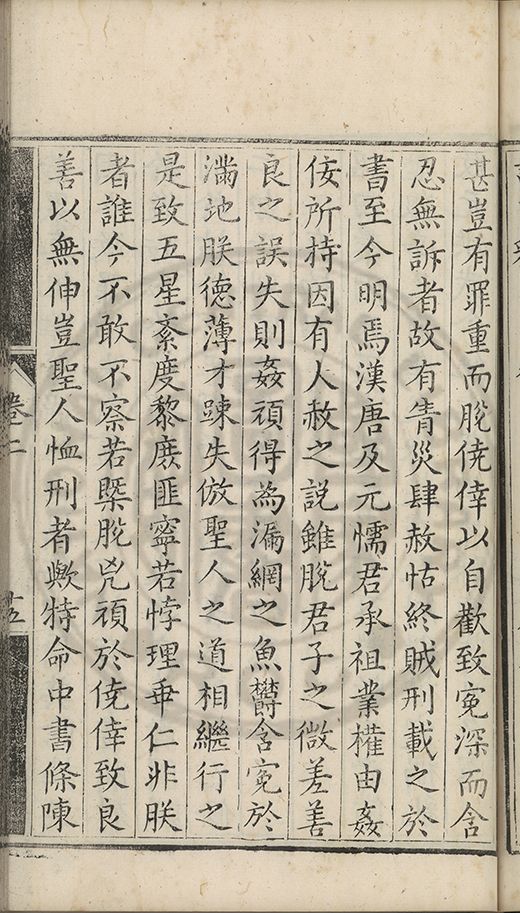 甚豈有罪重而脫僥倖以自歡致寃深而含
忍無訴者故有眚災肆赦怙終賊刑載之於
書至今明焉漢唐及元懦君承祖業權由姦
佞所持因有人赦之説雖脫君子之微差善
良之誤失則姦頑得為漏網之魚欝含寃於
滿地朕德薄才踈失倣聖人之道相繼行之
是致五星紊度黎庶匪寧若悖理乖仁非朕
者誰今不敢不察若槩脫兇頑於僥倖致良
善以無伸豈聖人恤刑者歟特命中書條陳
卷二